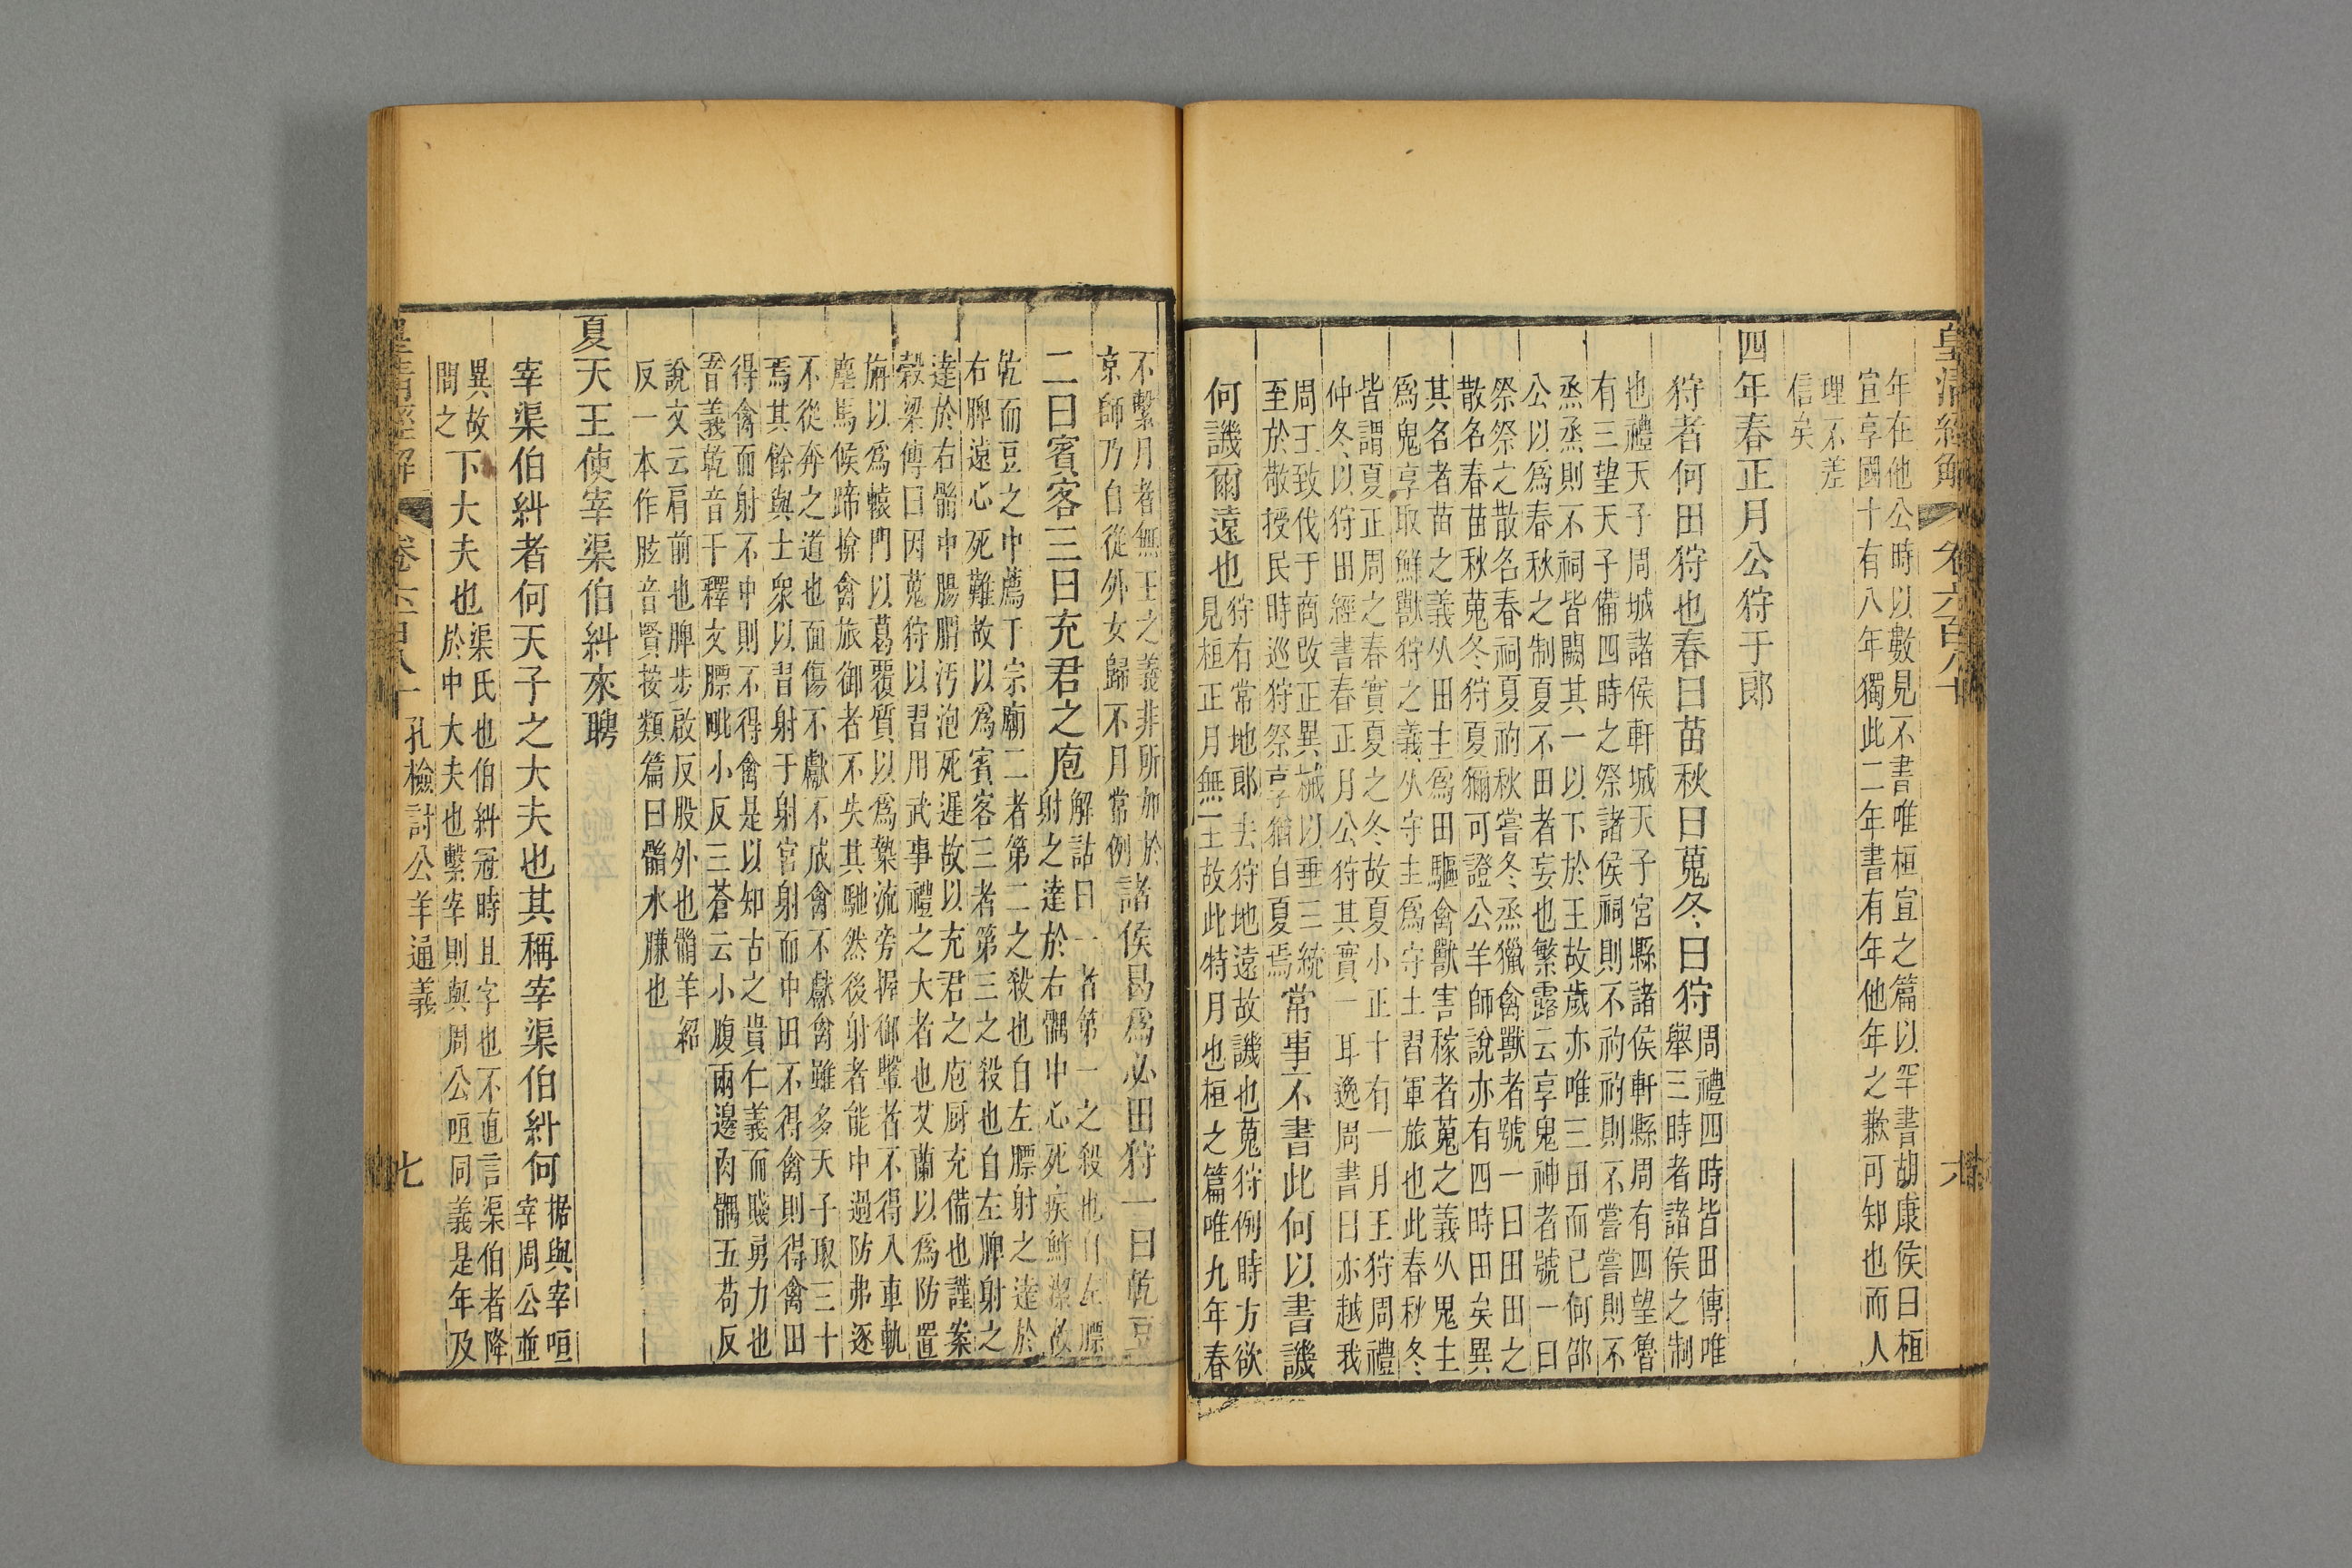 皇清經解 卷六百八十 六
年在他公時以數見不書唯桓宣之篇以罕書胡康侯曰桓
宣享國十有八年獨此二年書有年他年之歉可知也而人
理不差
信矣
四年春正月公狩于郎
狩者何田狩也春曰苗秋曰蒐冬曰狩
周禮四時皆田傳唯
舉三時者諸侯之制
也禮天子周城諸侯軒城天子宮縣諸侯軒縣周有四望魯
有三望天子備四時之祭諸侯祠則不礿礿則不嘗嘗則不
烝烝則不祠皆闕其一以下於王故歲亦唯三田而已何邵
公以爲春秋之制夏不田者妄也繁露云享鬼神者號一曰
祭祭之散名春祠夏礿秋嘗冬烝獵禽獸者號一曰田田之
散名春苗秋蒐冬狩夏獮可證公羊師說亦有四時田矣異
其名者苗之義从田主爲田驅禽獸害稼者蒐之義从鬼主
爲鬼享取鮮獸狩之義从守主爲守土習軍旅也此春秋冬
皆謂夏正周之春實夏之冬故夏小正十有一月王狩周禮
仲冬以狩田經書春正月公狩其實一耳逸周書曰亦越我
周王致伐于商改正異械以垂三統
至於敬授民時巡狩祭享猶自夏焉
常事不書此何以書譏
何譏爾遠也
狩有常地郎去狩地遠故譏也蒐狩例時方欲
見桓正月無王故此特月也桓之篇唯九年春
不繫月者無王之義非所加於
京師乃自從外女歸不月常例
諸侯曷爲必田狩一曰乾豆
二曰賓客三曰充君之庖
解詁曰一者第一之殺也自左膘
射之達於右髃中心死疾鮮潔故
乾而豆之中薦于宗廟二者第二之殺也自左膘射之達於
右脾遠心死難故以爲賓客三者第三之殺也自左脾射之
達於右䯚中腸胃汚泡死遲故以充君之庖厨充備也謹案
榖梁傳曰因蒐狩以習用武事禮之大者也艾蘭以爲防置
旃以爲轅門以葛覆質以爲槷流旁握御轚者不得入車軌
塵馬候蹄揜禽旅御者不失其馳然後射者能中過防弗逐
不從奔之道也面傷不獻不成禽不獻禽雖多天子取三十
焉其餘與士衆以習射于射宮射而中田不得禽則得禽田
得禽而射不中則不得禽是以知古之貴仁義而賤勇力也
音義乾音干釋文膘毗小反三蒼云小腹兩邊肉髃五苟反
說文云肩前也脾步啟反股外也䯚羊紹
反一本作胘音賢按類篇曰䯚水膁也
夏天王使宰渠伯糾來聘
宰渠伯糾者何天子之大夫也其稱宰渠伯糾何
据與宰咺
宰周公並
異故
問之
下大夫也
渠氏也伯糾冠時且字也不直言渠伯者降
於中大夫也繫宰則與周公咺同義是年及
皇清經解 卷六百八十 孔檢討公羊通義 七